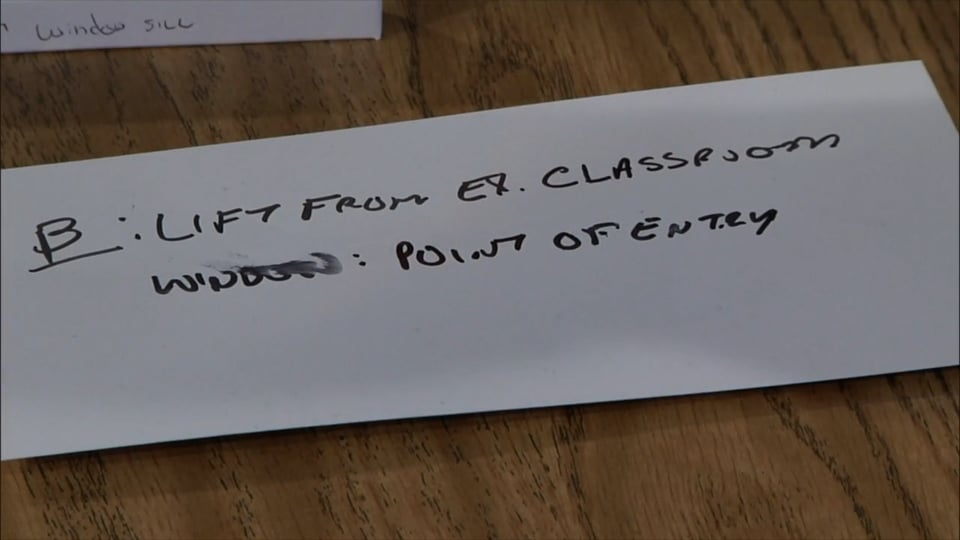 Window SILL
B: LIFT FROM EX. CLASSROOM
WINDOW: POINT OF ENTRY